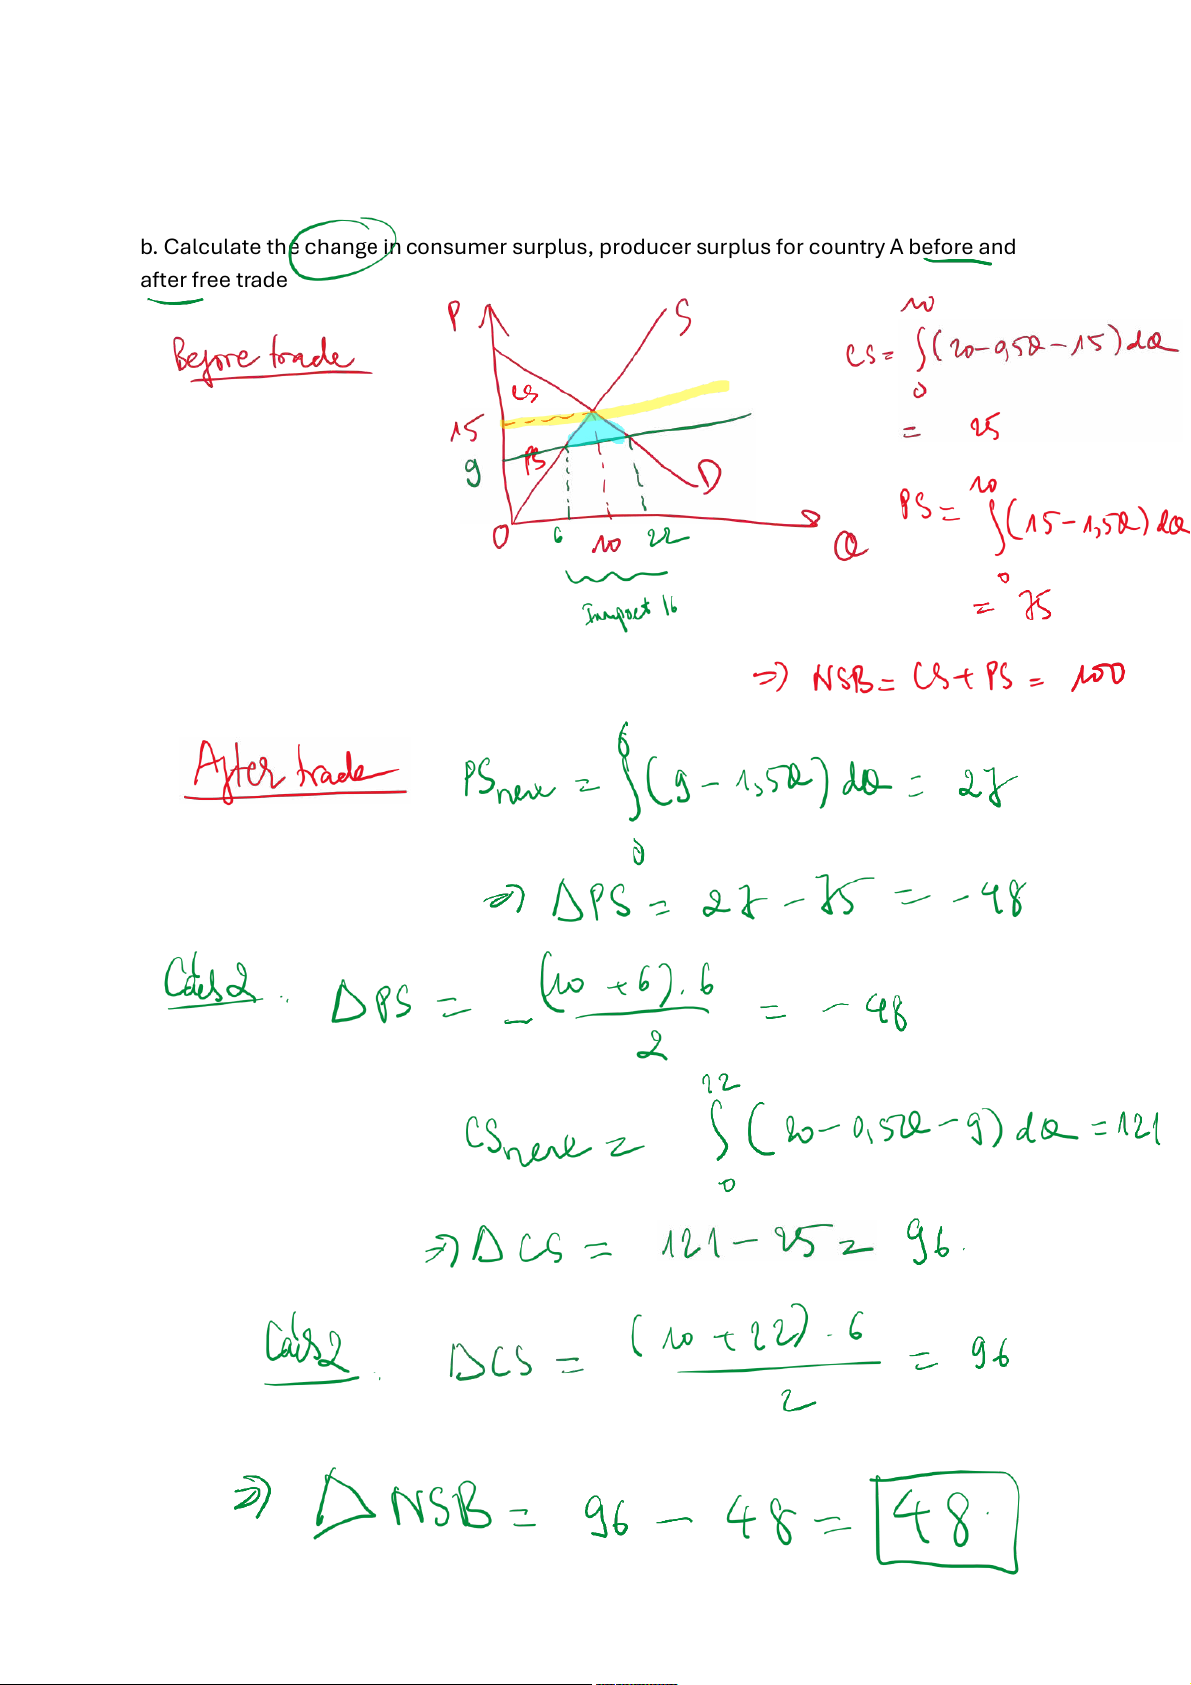 b. Calculate the change in consumer surplus, producer surplus for country A before and
after free trade
Before trade
P
S
CS
15
9
PS
D
O
6
10
22
Q
Import 16
CS = ∫₀¹⁰ (20 - 0,5Q - 15) dQ
= 25
PS = ∫₀¹⁰ (15 - 1,5Q) dQ
= 75
=> NSB = CS + PS = 100
After trade
PS new = ∫₀⁶ (9 - 1,5Q) dQ = 27
=> ΔPS = 27 - 75 = -48
Cách 2. ΔPS = -(10 + 6).6 / 2 = -48
CS new = ∫₀²² (20 - 0,5Q - 9) dQ = 121
=> ΔCS = 121 - 25 = 96.
Cách 2. ΔCS = (10 + 22).6 / 2 = 96
=> ΔNSB = 96 - 48 = 48.